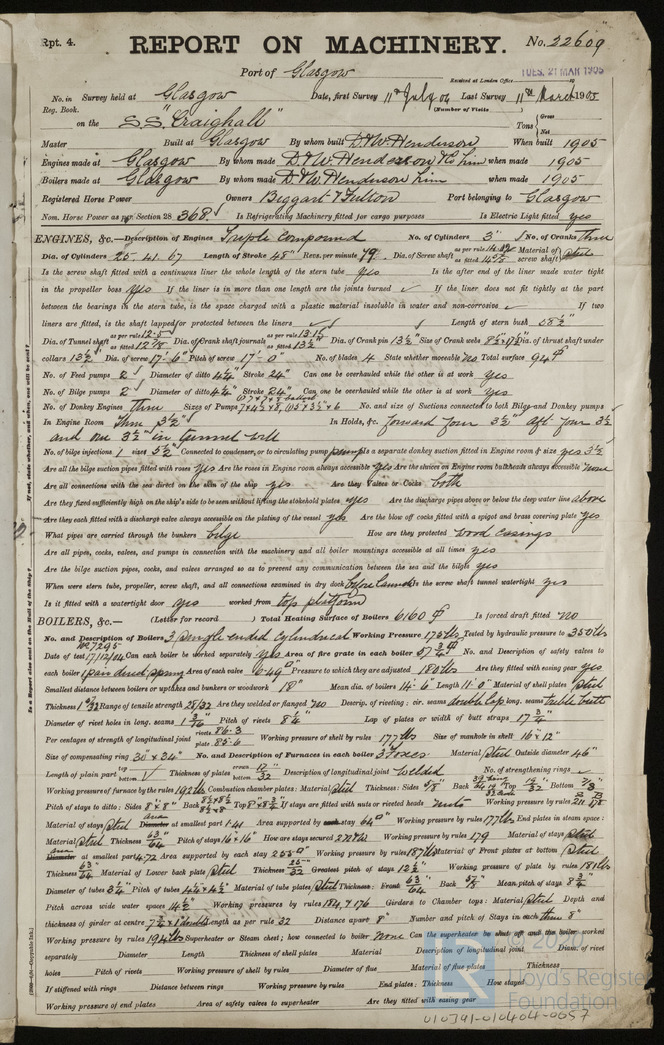 Rpt. 4.
REPORT ON MACHINERY.
No. 22609
Port of Glasgow
Received at London Office
TUES. 21 MAR 1905
No. in Survey held at Glasgow Date, first Survey 11th July 04 Last Survey 11th March 1905
Reg. Book. (Number of Visits
on the S.S. "Craighall" Tons { Gross Net
Master Built at Glasgow By whom built D. & W. Henderson When built 1905
Engines made at Glasgow By whom made D. & W. Henderson & Co Lim when made 1905
Boilers made at Glasgow By whom made D. & W. Henderson Lim when made 1905
Registered Horse Power Owners Biggart & Fulton Port belonging to Glasgow
Nom. Horse Power as per Section 28 368 Is Refrigerating Machinery fitted for cargo purposes Is Electric Light fitted yes
ENGINES, &c.—Description of Engines Tripple Compound No. of Cylinders 3 No. of Cranks Three
Dia. of Cylinders 25. 41. 67 Length of Stroke 48" Revs. per minute 79 Dia. of Screw shaft as per rule as fitted Material of screw shaft Steel
Is the screw shaft fitted with a continuous liner the whole length of the stern tube yes Is the after end of the liner made water tight
in the propeller boss yes If the liner is in more than one length are the joints burned ✓ If the liner does not fit tightly at the part
between the bearings in the stern tube, is the space charged with a plastic material insoluble in water and non-corrosive ✓ If two
liners are fitted, is the shaft lapped or protected between the liners ✓ Length of stern bush 58½"
Dia. of Tunnel shaft as per rule 12.5 as fitted 12 7/8 Dia. of Crank shaft journals as per rule 13.15 as fitted 13½" Dia. of Crank pin 13½" Size of Crank webs Dia. of thrust shaft under
collars 13½" Dia. of screw 17'-6" Pitch of screw 17'-0" No. of blades 4 State whether moveable no Total surface 94
No. of Feed pumps 2 Diameter of ditto 4¼" Stroke 24" Can one be overhauled while the other is at work yes
No. of Bilge pumps 2 Diameter of ditto 4¼" Stroke 24" Can one be overhauled while the other is at work yes
No. of Donkey Engines Three Sizes of Pumps No. and size of Suctions connected to both Bilge and Donkey pumps
In Engine Room Three 3½" In Holds, &c. forward four 3½" Aft four 3½
and one 3½" in tunnel well
No. of bilge injections 1 sizes 5½" Connected to condenser, or to circulating pump pump Is a separate donkey suction fitted in Engine room & size yes 3½
Are all the bilge suction pipes fitted with roses yes Are the roses in Engine room always accessible yes Are the sluices on Engine room bulkheads always accessible none
Are all connections with the sea direct on the skin of the ship yes Are they Valves or Cocks both
Are they fixed sufficiently high on the ship's side to be seen without lifting the stokehold plates yes Are the discharge pipes above or below the deep water line above
Are they each fitted with a discharge valve always accessible on the plating of the vessel yes Are the blow off cocks fitted with a spigot and brass covering plate yes
What pipes are carried through the bunkers bilge How are they protected wood casings
Are all pipes, cocks, valves, and pumps in connection with the machinery and all boiler mountings accessible at all times yes
Are the bilge suction pipes, cocks, and valves arranged so as to prevent any communication between the sea and the bilges yes
When were stern tube, propeller, screw shaft, and all connections examined in dry dock before launch Is the screw shaft tunnel watertight yes
Is it fitted with a watertight door yes worked from top platform
BOILERS, &c.— (Letter for record ) Total Heating Surface of Boilers 6160 Is forced draft fitted no
No. and Description of Boilers 3 single ended cylindrical Working Pressure 175 lbs Tested by hydraulic pressure to 350 lbs
No 7295
Date of test 17/12/04 Can each boiler be worked separately yes Area of fire grate in each boiler No. and Description of safety valves to
each boiler Area of each valve 6.49 Pressure to which they are adjusted 180 lbs Are they fitted with easing gear yes
Smallest distance between boilers or uptakes and bunkers or woodwork 18" Mean dia. of boilers 14'-6" Length 11'-0" Material of shell plates Steel
Thickness Range of tensile strength 28/32 Are they welded or flanged no Descrip. of riveting: cir. seams double lap long. seams treble butt
Diameter of rivet holes in long. seams 1 3/16" Pitch of rivets 8¼" Lap of plates or width of butt straps 17¾"
Per centages of strength of longitudinal joint rivets 86.3 plate 85.6 Working pressure of shell by rules 177 lbs Size of manhole in shell 16" x 12"
Size of compensating ring 30" x 34" No. and Description of Furnaces in each boiler 3 Foxes Material Steel Outside diameter 46"
Length of plain part top bottom ✓ Thickness of plates crown bottom 17/32 Description of longitudinal joint Welded No. of strengthening rings ✓
Working pressure of furnace by the rules 192 lbs Combustion chamber plates: Material Steel Thickness: Sides Back Top Bottom
Pitch of stays to ditto: Sides 8⅛" x 8" Back Top If stays are fitted with nuts or riveted heads nuts Working pressure by rules
Material of stays Steel Diameter Area at smallest part 1.41 Area supported by each stay 64 Working pressure by rules 177 lbs End plates in steam space:
Material Steel Thickness 63/64 Pitch of stays 16" x 16" How are stays secured Working pressure by rules 179 Material of stays Steel
Diameter Area at smallest part 4.72 Area supported by each stay 255 Working pressure by rules 187 lbs Material of Front plates at bottom Steel
Thickness 63/64 Material of Lower back plate Steel Thickness 25/32 Greatest pitch of stays 12½" Working pressure of plate by rules 181 lbs
Diameter of tubes 3¼" Pitch of tubes 4½ x 4½" Material of tube plates Steel Thickness: Front 63/64 Back 5/8 Mean pitch of stays 8¾"
Pitch across wide water spaces 14½" Working pressures by rules 184 & 176 Girders to Chamber tops: Material Steel Depth and
thickness of girder at centre 7½ x 1" double Length as per rule 32 Distance apart 8" Number and pitch of Stays in each three 8"
Working pressure by rules 194 lbs Superheater or Steam chest; how connected to boiler None Can the superheater be shut off and the boiler worked
separately Diameter Length Thickness of shell plates Material Description of longitudinal joint Diam. of rivet
holes Pitch of rivets Working pressure of shell by rules Diameter of flue Material of flue plates Thickness
If stiffened with rings Distance between rings Working pressure by rules End plates: Thickness How stayed
Working pressure of end plates Area of safety valves to superheater Are they fitted with easing gear
Lloyd's Register
Foundation
010391-010404-0057